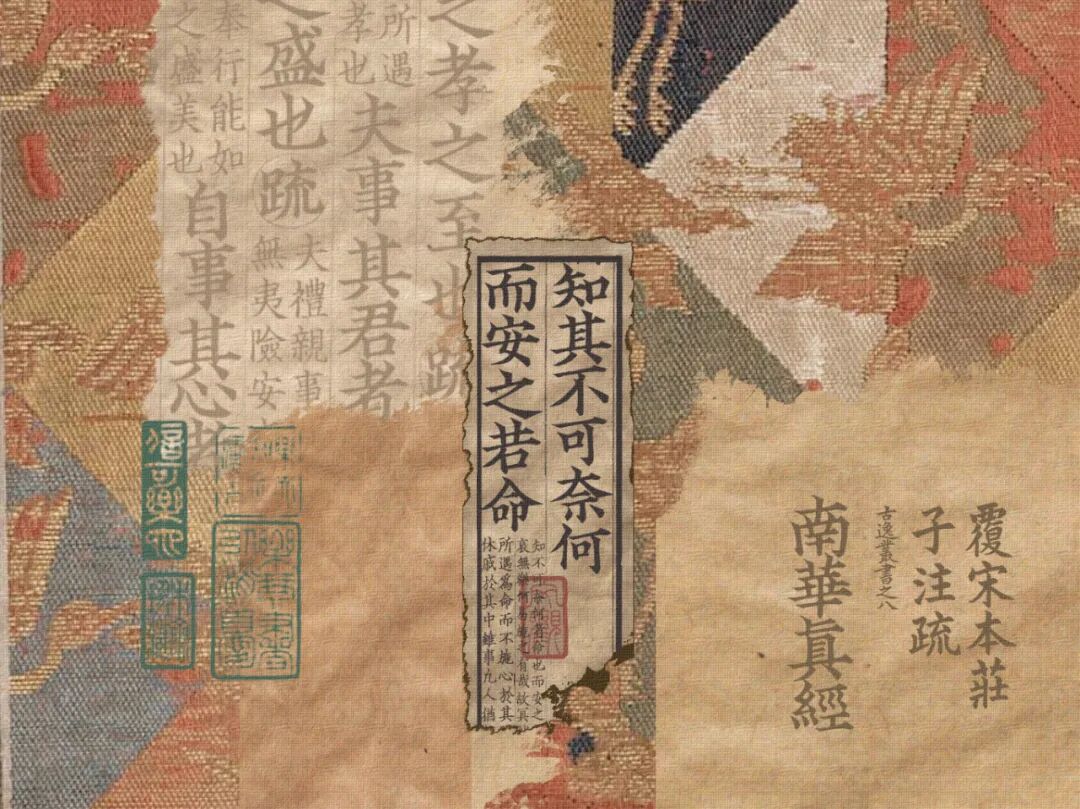 覆宋本莊
子注疏
古逸叢書之八
南華眞經
知其不可奈何
而安之若命
知不可奈何者命也而安之
哀無樂何易施之有哉故冥
所遇爲命而不施心於其
休戚於其中雖事凡人猶
之孝之至也疏
所遇
孝也
夫事其君者
之盛也疏
大禮親事
無夷險安
奉行能如
之盛美也
自事其心者
信可樂也